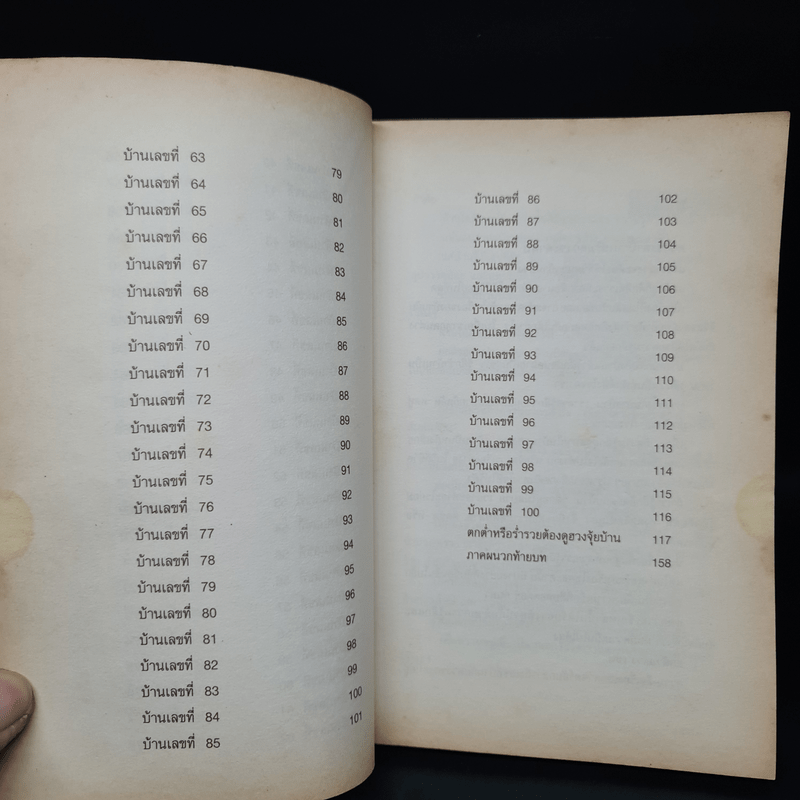 บ้านเลขที่ 63 79
บ้านเลขที่ 64 80
บ้านเลขที่ 65 81
บ้านเลขที่ 66 82
บ้านเลขที่ 67 83
บ้านเลขที่ 68 84
บ้านเลขที่ 69 85
บ้านเลขที่ 70 86
บ้านเลขที่ 71 87
บ้านเลขที่ 72 88
บ้านเลขที่ 73 89
บ้านเลขที่ 74 90
บ้านเลขที่ 75 91
บ้านเลขที่ 76 92
บ้านเลขที่ 77 93
บ้านเลขที่ 78 94
บ้านเลขที่ 79 95
บ้านเลขที่ 80 96
บ้านเลขที่ 81 97
บ้านเลขที่ 82 98
บ้านเลขที่ 83 99
บ้านเลขที่ 84 100
บ้านเลขที่ 85 101
บ้านเลขที่ 86 102
บ้านเลขที่ 87 103
บ้านเลขที่ 88 104
บ้านเลขที่ 89 105
บ้านเลขที่ 90 106
บ้านเลขที่ 91 107
บ้านเลขที่ 92 108
บ้านเลขที่ 93 109
บ้านเลขที่ 94 110
บ้านเลขที่ 95 111
บ้านเลขที่ 96 112
บ้านเลขที่ 97 113
บ้านเลขที่ 98 114
บ้านเลขที่ 99 115
บ้านเลขที่ 100 116
ตกต่ำหรือร่ำรวยต้องดูฮวงจุ้ยบ้าน 117
ภาคผนวกท้ายบท 158